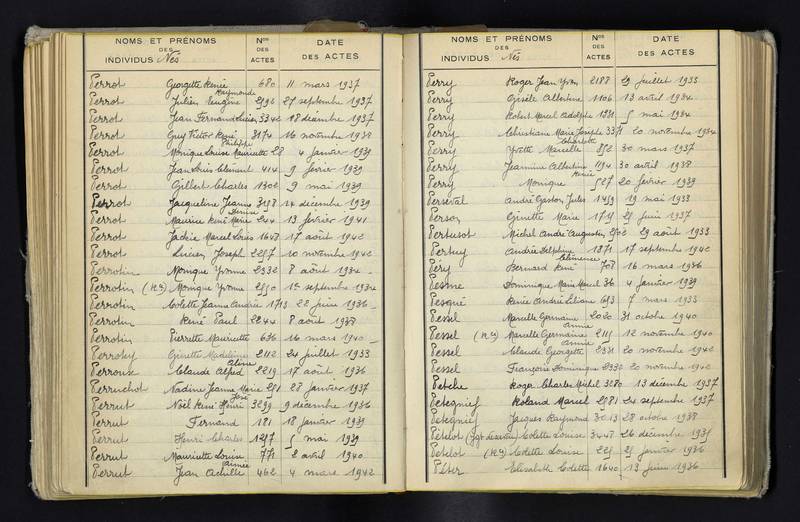 NOMS ET PRÉNOMS DES INDIVIDUS Nés
Nos DES ACTES
DATE DES ACTES
Perrot Georgette Renée 680 11 mars 1937
Raymonde
Perrot Julien Eugène 27 septembre 1937
Perrot Jean Fernand Lucien 3342 18 décembre 1937
Perrot Guy Victor René 3174 16 novembre 1938
Philippe
Perrot Monique Louise Mauricette 28 4 janvier 1939
Perrot Jean Louis Clément 414 9 février 1939
Perrot Gilbert Charles 1302 9 mai 1939
Perrot Jacqueline Jeanne 3198 14 décembre 1939
Denise
Perrot Maurice René Marie 244 13 février 1941
Perrot Jackie Marcel Louis 1648 17 août 1942
Perrot Lucien Joseph 10 novembre 1942
Perrotin Monique Yvonne 2332 8 août 1934
Perrotin Monique Yvonne 1er septembre 1934
Perrotin Colette Jeanne Andrée 1713 22 juin 1936
Perrotin René Paul 2244 8 août 1938
Perrotin Pierrette Mauricette 636 16 mars 1940
Perroty Ginette Madeleine 2112 24 juillet 1933
Aline
Perroux Claude Alfred 2219 17 août 1936
Perruchot Nadine Jeanne Marie 28 janvier 1937
José
Perrut Noël René Henri 3299 9 décembre 1936
Perrut Fernand 181 18 janvier 1939
Perrut Henri Charles 1297 5 mai 1939
Perrut Mauricette Louise 771 2 avril 1940
Aimée
Perrut Jean Achille 462 4 mars 1942
NOMS ET PRÉNOMS DES INDIVIDUS Nés
Nos DES ACTES
DATE DES ACTES
Perry Roger Jean Yvon 2188 29 juillet 1933
Perry Gisèle Albertine 1106 13 avril 1934
Perry Robert Marcel Adolphe 1331 5 mai 1934
Perry Christiane Marie Josèphe 3371 20 novembre 1934
Charlotte
Perry Yvette Marcelle 852 30 mars 1937
Perry Jeannine Albertine 1194 30 avril 1938
Renée
Perry Monique 527 20 février 1939
Perseval André Gaston Jules 1459 19 mai 1933
Person Ginette Marie 21 juin 1937
Pertusot Michel André Augustin 29 août 1933
Pertuy Andrée Delphine 1871 17 septembre 1942
Clémence
Péry Bernard René 708 16 mars 1936
Pesme Dominique Marie Marcel 36 4 janvier 1939
Pesqué Renée Andrée Eliane 693 7 mars 1933
Pessel Marcelle Germaine 2020 31 octobre 1940
Annie
Pessel Marcelle Germaine 2115 12 novembre 1940
Annie
Pessel Claude Georgette 2331 20 novembre 1942
Pessel Françoise Dominique 2332 20 novembre 1942
Petche Roger Charles Michel 3280 13 décembre 1937
Petegnief Roland Marcel 2581 24 septembre 1937
Petegnief Jacques Raymond 3013 28 octobre 1938
Petelot Colette Louise 3448 26 décembre 1935
Petelot Colette Louise 225 21 janvier 1936
Péter Elisabeth Colette 1640 13 juin 1936